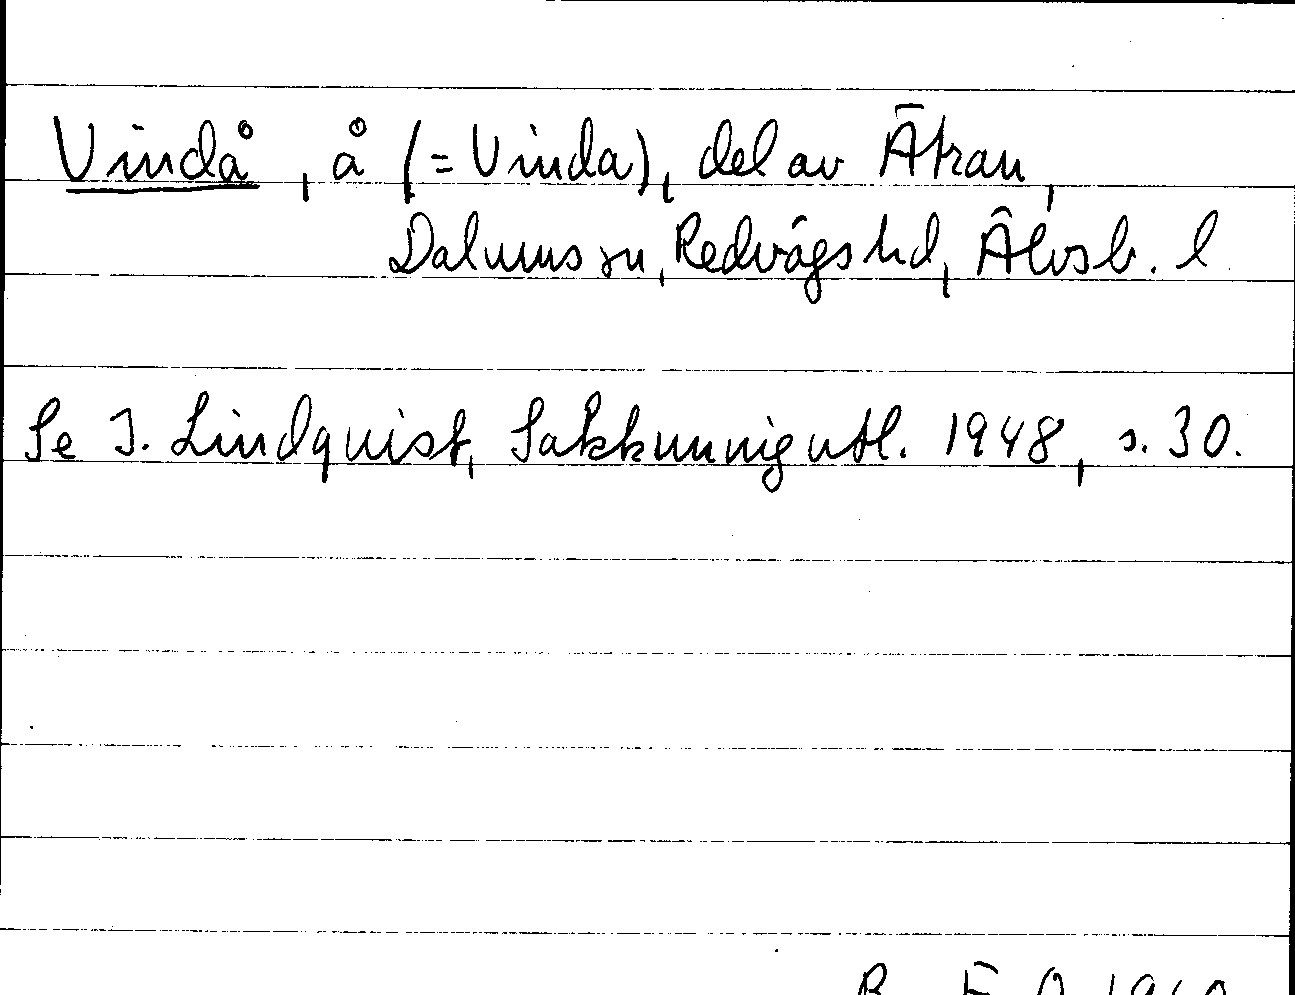 Vindå, å (= Vinda), del av Ätran,
Dalums sn, Redvägs hd, Älvsb. l
Se I. Lindquist, Sakkunnigutl. 1948, s. 30.